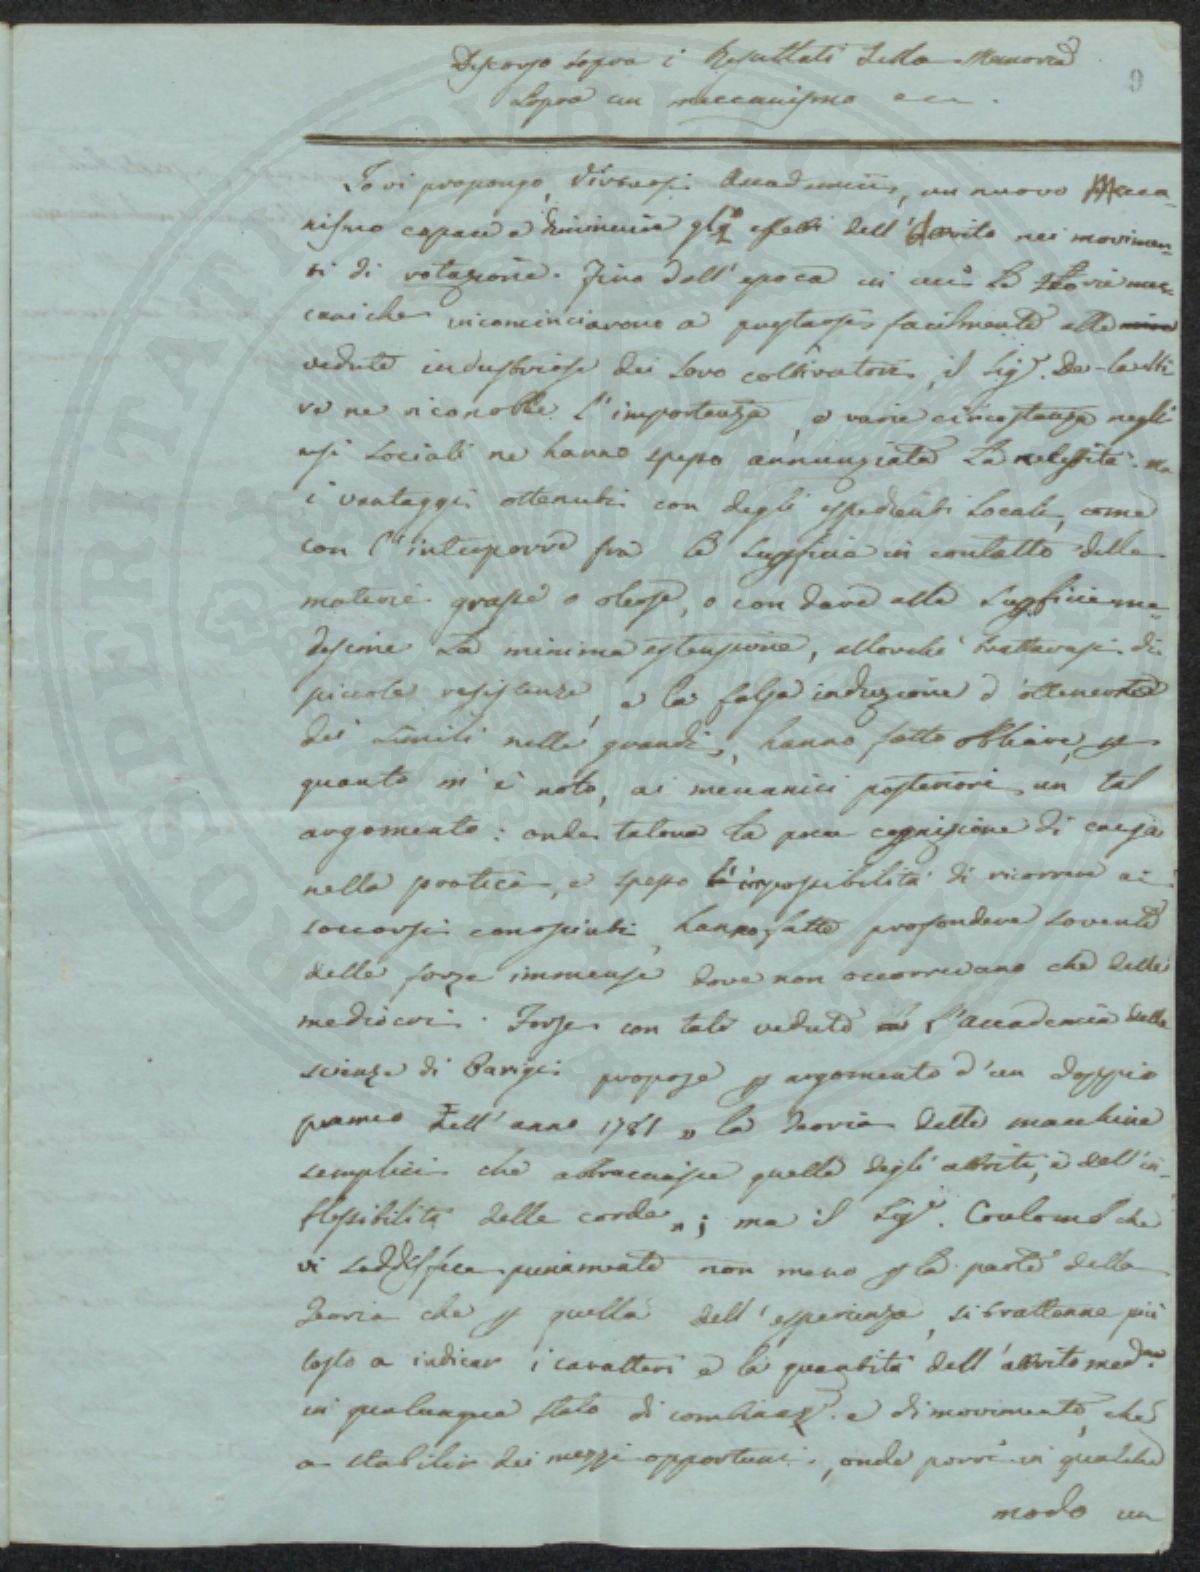 Discorso sopra i Resultati della Memoria
sopra un meccanismo ecc.
9
Io vi propongo, virtuosi Accademici, un nuovo Mecca-
nismo capace a diminuire gli effetti dell'Attrito nei movimen-
ti di rotazione. Fino dall'epoca in cui le Teorie mec-
caniche incominciarono a prestarsi facilmente alle
vedute industriose dei loro coltivatori, il Sig.r De-la-Hi
re ne riconobbe l'importanza, e varie circostanze negli
usi sociali ne hanno spesso annunziata la necessità. ma
i vantaggi ottenuti con degli espedienti locali, come
con l'interporre fra le superficie in contatto delle
materie grasse o oleose, o con dare alle superficie me-
desime la minima estensione, allorchè trattavasi di
piccole resistenze, e la falsa induzione d'ottenerne
dei simili nelle grandi, hanno fatto obbliare, p
quanto m'è noto, ai meccanici posteriori un tal
argomento: onde talora la poca cognizione di essa
nella pratica, e spesso l'impossibilità di ricorrere ai
soccorsi conosciuti, hanno fatto profondere sovente
delle forze immense dove non occorrevano che delle
mediocri. Forse con tali vedute l'Accademia delle
scienze di Parigi propose p argomento d'un doppio
premio dell'anno 1781 „ la Teoria delle macchine
semplici che abbracciasse quella degli attriti, e dell'in-
flessibilità delle corde „; ma il Sig.r Coulomb che
vi soddisfece pienamente non meno p la parte della
Teoria che p quella dell'esperienza, si trattenne piu
tosto a indicar i caratteri e la quantità dell'attrito med.mo
in qualunque stato di combinaz. e di movimento, che
a stabilir dei mezzi opportuni, onde porre in qualche
modo un